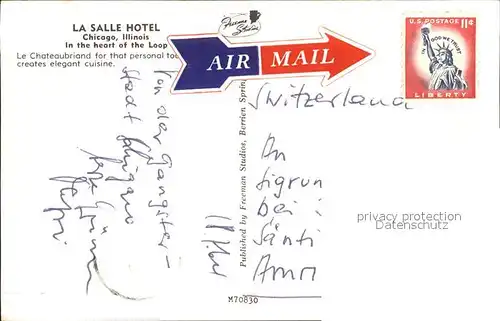 LA SALLE HOTEL
Chicago, Illinois
In the heart of the Loop
Le Chateaubriand for that personal to
creates elegant cuisine.
Freeman
Studios
AIR MAIL
U.S. POSTAGE 11¢
IN GOD WE TRUST
LIBERTY
Von der Gangster-
stadt
Switzerland
An
Sigrun
bei:
Sänti
Published by Freeman Studios, Berrien Sprin
privacy protection
Datenschutz
M70830